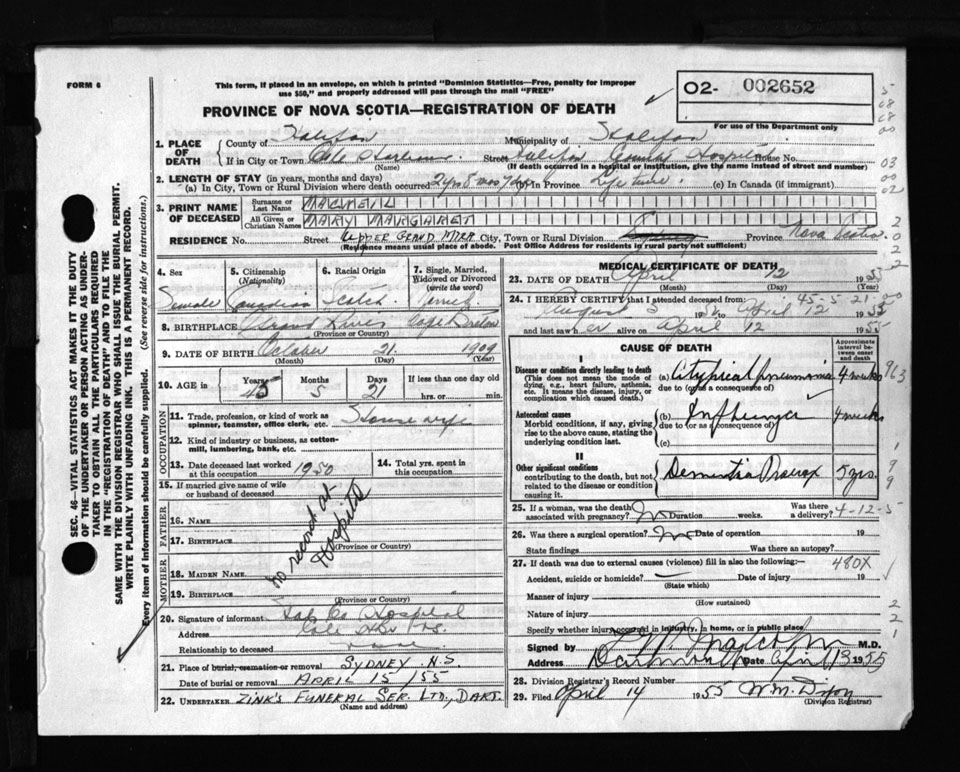 FORM 6
This form, if placed in an envelope, on which is printed "Dominion Statistics—Free, penalty for improper
use $50," and properly addressed will pass through the mail "FREE"
02- 002652
For use of the Department only
PROVINCE OF NOVA SCOTIA—REGISTRATION OF DEATH
1. PLACE OF DEATH
County of Halifax Municipality of Halifax
If in City or Town Cole Harbour Street Halifax County Hospital House No.
(Name) (If death occurred in a hospital or institution, give the name instead of street and number)
2. LENGTH OF STAY (in years, months and days)
(a) In City, Town or Rural Division where death occurred 2 yrs 8 mos 7 (b) In Province Life time. (c) In Canada (if immigrant)
3. PRINT NAME OF DECEASED
Surname or Last Name MACNEIL
All Given or Christian Names MARY MARGARET
RESIDENCE No. Street UPPER GRAND MIRA City, Town or Rural Division Sydney Province Nova Scotia
Residence means usual place of abode. Post Office Address for residents in rural parts not sufficient)
4. Sex Female
5. Citizenship (Nationality) Canadian
6. Racial Origin Scotch
7. Single, Married, Widowed or Divorced (write the word)
8. BIRTHPLACE Grand River Cape Breton
(Province or Country)
9. DATE OF BIRTH October 21 1909
(Month) (Day) (Year)
10. AGE in Years 45 Months 5 Days 21 If less than one day old
hrs. or min.
OCCUPATION
11. Trade, profession, or kind of work as spinner, teamster, office clerk, etc. House wife
12. Kind of industry or business, as cotton-mill, lumbering, bank, etc.
13. Date deceased last worked at this occupation 1950
14. Total yrs. spent in this occupation
15. If married give name of wife or husband of deceased
FATHER
16. NAME
17. BIRTHPLACE
(Province or Country)
MOTHER
18. MAIDEN NAME
19. BIRTHPLACE
(Province or Country)
No record at Hospital
20. Signature of informant Hal Co Hospital
Address Cole Hbr NS.
Relationship to deceased
21. Place of burial, cremation or removal SYDNEY N.S
Date of burial or removal APRIL 15/55
22. UNDERTAKER ZINK'S FUNERAL SER. LTD., DART.
(Name and address)
MEDICAL CERTIFICATE OF DEATH
23. DATE OF DEATH April 12 1955
(Month) (Day) (Year)
45-5-21
24. I HEREBY CERTIFY that I attended deceased from
August 5 1952 to April 12 1955
and last saw her alive on April 12 1955
CAUSE OF DEATH
Approximate interval between onset and death
I
Disease or condition directly leading to death
(This does not mean the mode of dying, e.g., heart failure, asthenia, etc. It means the disease, injury, or complication which caused death.)
(a) Atypical pneumonia 4 weeks
due to (or as a consequence of)
Antecedent causes
Morbid conditions, if any, giving rise to the above cause, stating the underlying condition last.
(b) Influenza 4 weeks
due to (or as a consequence of)
(c)
II
Other significant conditions
contributing to the death, but not related to the disease or condition causing it.
Dementia Praecox 5 yrs.
25. If a woman, was the death associated with pregnancy? No Duration weeks. Was there a delivery?
4-12-5
26. Was there a surgical operation? No Date of operation 19
State findings Was there an autopsy?
27. If death was due to external causes (violence) fill in also the following:— 480X
Accident, suicide or homicide? Date of injury 19
(State which)
Manner of injury
(How sustained)
Nature of injury
Specify whether injury occurred in industry, in home, or in public place
Signed by M.D.
Address Dartmouth Date April 13 1955
28. Division Registrar's Record Number
29. Filed April 14 1955 W.M. Dixon
(Division Registrar)
SEC. 46 VITAL STATISTICS ACT MAKES IT THE DUTY
OF THE UNDERTAKER OR PERSON ACTING AS UNDERTAKER TO OBTAIN ALL THE PARTICULARS REQUIRED
IN THE "REGISTRATION OF DEATH" AND TO FILE THE
SAME WITH THE DIVISION REGISTRAR WHO SHALL ISSUE THE BURIAL PERMIT.
WRITE PLAINLY WITH UNFADING INK. THIS IS A PERMANENT RECORD.
Every item of information should be carefully supplied. (See reverse side for instructions.)